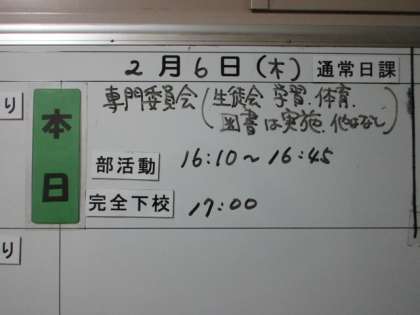 2月6日(木) 通常日課
専門委員会(生徒会 学習.体育.
図書は実施.他はなし)
り
本日
部活動 16:10〜16:45
完全下校 17:00
り